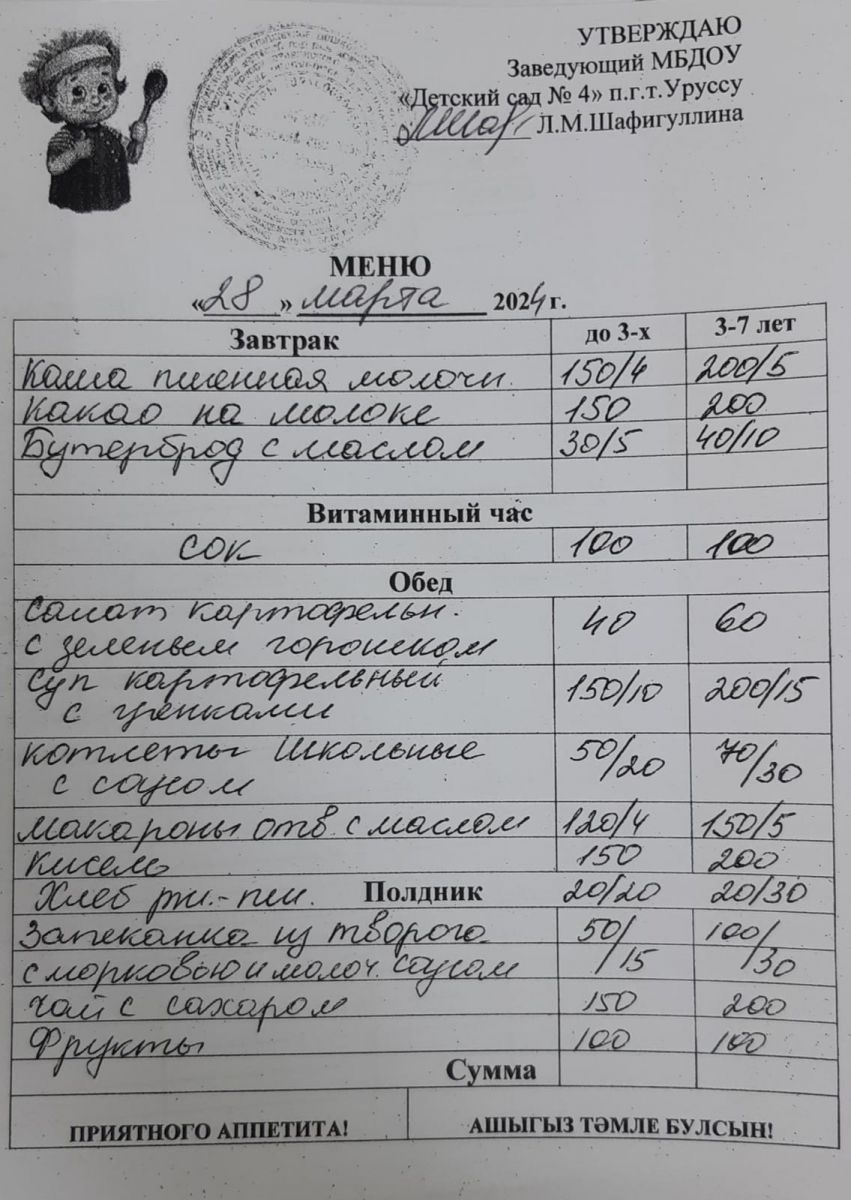 УТВЕРЖДАЮ
Заведующий МБДОУ
«Детский сад № 4» п.г.т.Уруссу
Л.М.Шафигуллина
МЕНЮ
«28» марта 2024 г.
Завтрак до 3-х 3-7 лет
Каша пшенная молочн. 150/4 200/5
Какао на молоке 150 200
Бутерброд с маслом 30/5 40/10
Витаминный час
сок 100 100
Обед
Салат картофельн. 40 60
с зеленым горошком
Суп картофельный 150/10 200/15
с гренками
Котлеты Школьные 50/20 70/30
с соусом
Макароны отв. с маслом 120/4 150/5
Кисель 150 200
Хлеб рж.-пш. Полдник 20/20 20/30
Запеканка из творога 50/ 100/
с морковью и молоч. соусом /15 /30
Чай с сахаром 150 200
Фрукты 100 100
Сумма
ПРИЯТНОГО АППЕТИТА! АШЫГЫЗ ТӘМЛЕ БУЛСЫН!